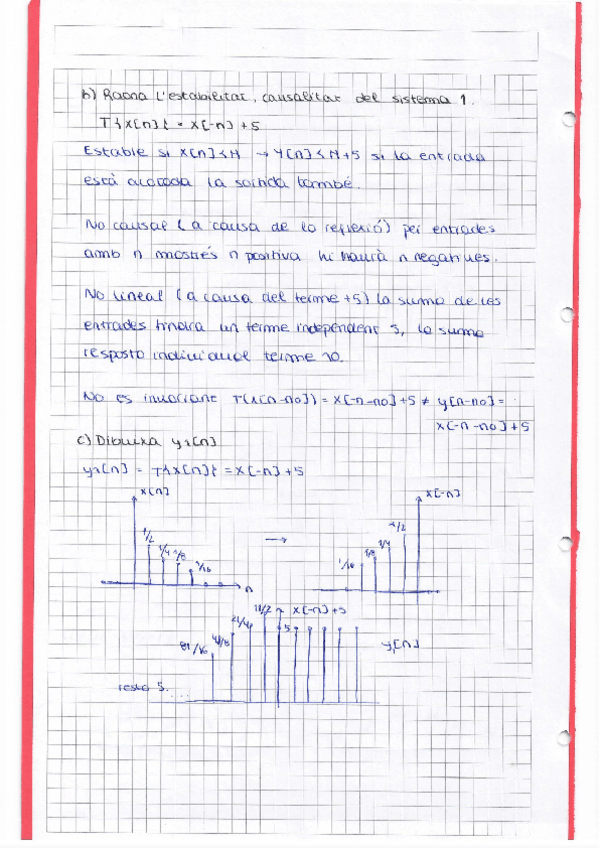 b) Raona l'estabilitat, causalitat del sistema 1.
T{x[n]} = x[-n] + 5
Estable si x[n] < M → y[n] < M+5 si la entrada
està acotada la sortida també.
No causal (a causa de la reflexió) per entrades
amb n mostrés n positiva hi haurà n negatives.
No lineal (a causa del terme +5) la suma de les
entrades tindra un terme independent 5, la suma
resposta individual terme 10.
No es invariant T(x[n-no]) = x[-n-no]+5 ≠ y[n-no] =
x[-n-no]+5
c) Dibuixa y1[n]
y1[n] = T{x[n]} = x[-n] + 5
x[n]
1/2
1/4
1/8
1/16
n
→
x[-n]
1/2
1/4
1/8
1/16
81/16
41/8
21/4
11/2
x[-n]+5
5
y1[n]
resta 5.....